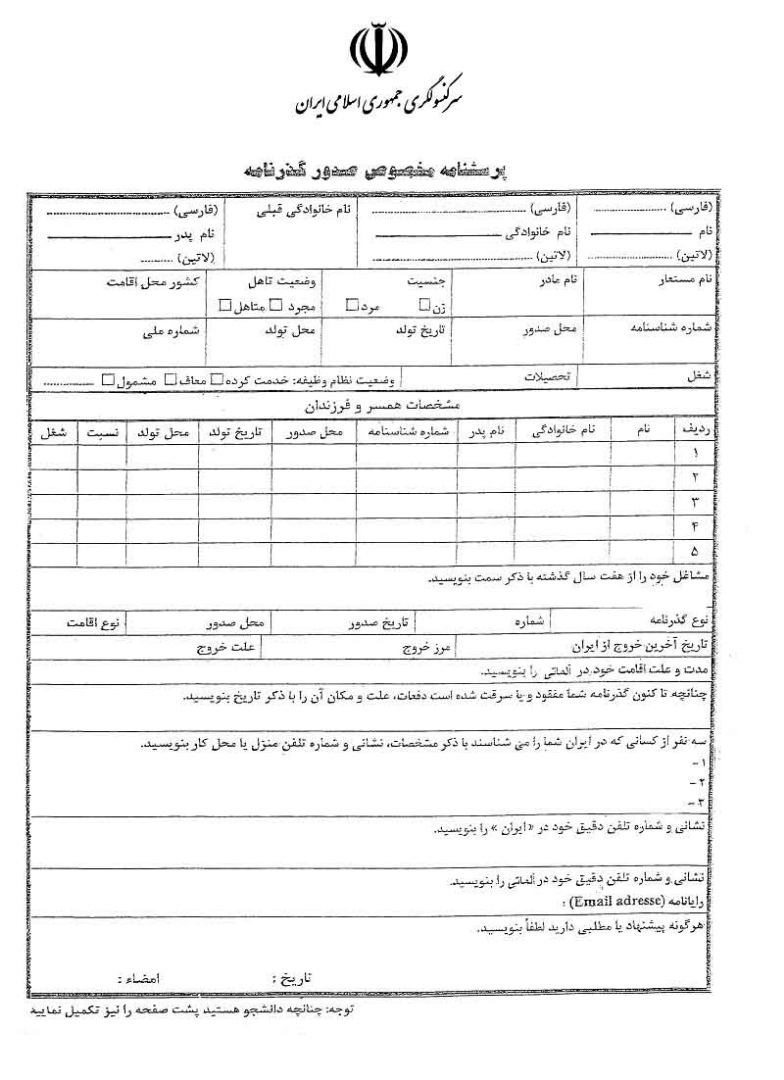 سرکنسولگری جمهوری اسلامی ایران
پرسشنامه مخصوص صدور گذرنامه
(فارسی) ........ (فارسی) ........ نام خانوادگی قبلی (فارسی) ........
نام نام خانوادگی نام پدر
(لاتین) ........ (لاتین) ........ (لاتین) ........
نام مستعار نام مادر جنسیت وضعیت تاهل کشور محل اقامت
زن□ مرد□ مجرد □ متاهل□
شماره شناسنامه محل صدور تاریخ تولد محل تولد شماره ملی
شغل تحصیلات وضعیت نظام وظیفه: خدمت کرده□ معاف□ مشمول□ ........
مشخصات همسر و فرزندان
ردیف نام نام خانوادگی نام پدر شماره شناسنامه محل صدور تاریخ تولد محل تولد نسبت شغل
۱
۲
۳
۴
۵
مشاغل خود را از هفت سال گذشته با ذکر سمت بنویسید.
نوع گذرنامه شماره تاریخ صدور محل صدور نوع اقامت
تاریخ آخرین خروج از ایران مرز خروج علت خروج
مدت و علت اقامت خود در آلماتی را بنویسید.
چنانچه تا کنون گذرنامه شما مفقود و یا سرقت شده است دفعات، علت و مکان آن را با ذکر تاریخ بنویسید.
سه نفر از کسانی که در ایران شما را می شناسند با ذکر مشخصات، نشانی و شماره تلفن منزل یا محل کار بنویسید.
۱-
۲-
۳-
نشانی و شماره تلفن دقیق خود در «ایران » را بنویسید.
نشانی و شماره تلفن دقیق خود در آلماتی را بنویسید.
رایانامه (Email adresse) :
هرگونه پیشنهاد یا مطلبی دارید لطفاً بنویسید.
تاریخ : امضاء :
توجه: چنانچه دانشجو هستید پشت صفحه را نیز تکمیل نمایید